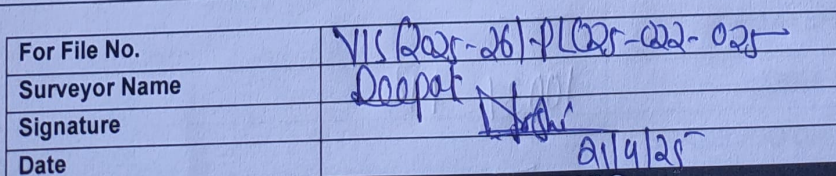 For File No. VIS(2025-26)-PL025-022-025
Surveyor Name Deepak
Signature
Date 21/4/25